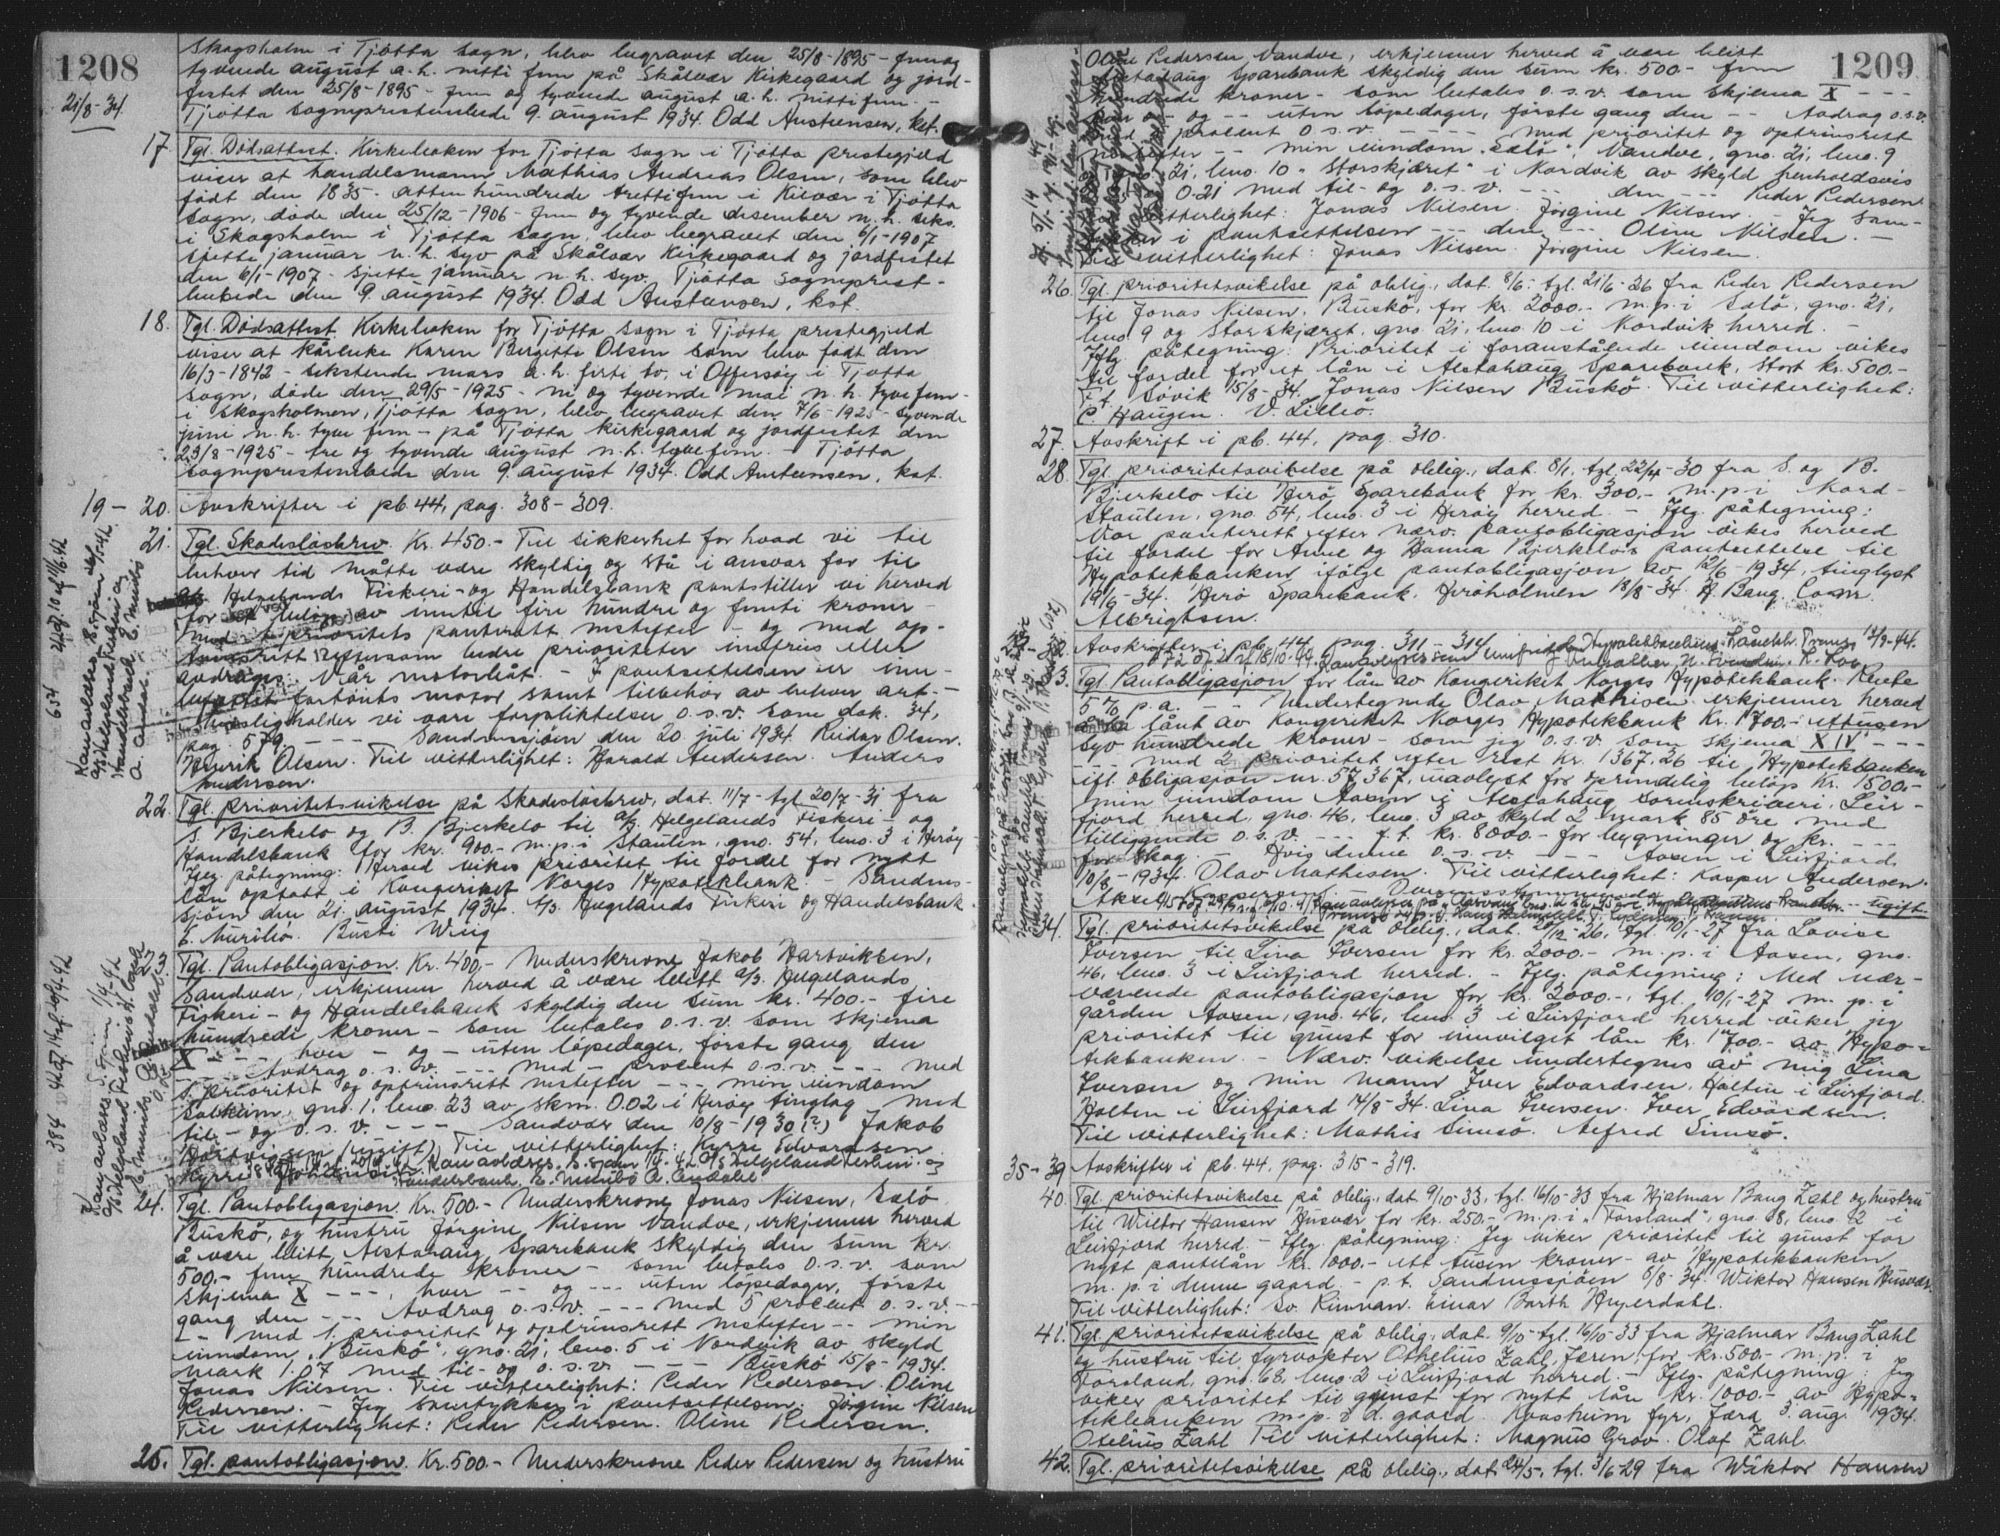 1208
21/8-34.
Skogsholm i Tjøtta sogn, blev begravet den 25/8-1895 - fem og
tyvende august a.h. nitti fem på Skålvær Kirkegaard og jord-
festet den 25/8-1895 - fem og tyvende august a.h. nittifem. -
Tjøtta sogneprestembede 9. august 1934. Odd Austensen, kst.
17. Tgl. Dødsattest. Kirkeboken for Tjøtta sogn i Tjøtta prestegjeld
viser at handelsmann Mathias Andreas Olsen, som blev
født den 1835 - atten hundrede trettifem i Kilvær i Tjøtta
sogn, døde den 25/12-1906 - fem og tyvende desember n.h. seks.
i Skogsholm i Tjøtta sogn, blev begravet den 6/1-1907
sjette januar n.h. syv på Skålvær Kirkegaard og jordfestet
den 6/1-1907 - sjette januar n.h. syv. Tjøtta sogneprest-
embede den 9. august 1934. Odd Austensen, kst.
18. Tgl. Dødsattest. Kirkeboken for Tjøtta sogn i Tjøtta prestegjeld
viser at kårenke Karen Bergette Olsen som blev født den
16/3-1842 - sekstende mars a.h. firti to, i Offersøy i Tjøtta
sogn, døde den 29/5-1925 - ni og tyvende mai n.h. tyve fem -
i Skogsholmen, Tjøtta sogn, blev begravet den 7/6-1925 - syvende
juni n.h. tyve fem - på Tjøtta kirkegaard og jordfestet den
23/8-1925 - tre og tyvende august n.h. tyvefem. - Tjøtta
sogneprestembede den 9. august 1934. Odd Austensen, kst.
19 - 20. Avskrifter i pb 44, pag. 308 - 309.
21. Tgl. Skadesløsbrev. Kr. 450.- Til sikkerhet for hvad vi til
enhver tid måtte være skyldig og stå i ansvar for til
A/S Helgelands Fiskeri- og Handelsbank pantstiller vi herved
for et beløp av inntil fire hundre og femti kroner -
med 1 prioritets panterett nestefter - og med op-
trinsrett eftersom bedre prioriteter innfries eller
avdrages. Vår motorbåt. - I pantsettelsen er inn-
befattet fartøiets motor samt tilbehør av enhver art. -
Hvoslig holder vi våre forpliktelser o.s.v. som dok. 34,
pag. 579. - - - Sandnessjøen den 20. juli 1934. Reidar Olsen.
Henrik Olsen. Til vitterlighet: Harald Andersen. Anders
Andersen.
22. Tgl. prioritetsvikelse på Skadesløsbrev, dat. 11/7 - tgl. 20/7-31 fra
S. Bjerkelo og B. Bjerkelo til A/S Helgelands Fiskeri- og
Handelsbank for kr. 900.- m.p.i Staulen, gno. 54, bno. 3 i Herøy
Iflg. påtegning: Herved vikes prioritet til fordel for nytt
lån optatt i Kongeriket Norges Hypotekbank. - Sandnes-
sjøen den 21. august 1934. A/S Helgelands Fiskeri og Handelsbank
Busti Wiig
23. Tgl. Pantobligasjon. Kr. 400,- Underskrevne Jakob Hartviksen,
Sandvær, erkjenner herved å være blitt A/S Helgelands
Fiskeri- og Handelsbank skyldig den sum kr. 400.- fire
hundrede kroner - som betales o.s.v. som skjema
X - - - hver - og - uten løpedager, første gang den
- - - Avdrag o.s.v. - - - med - procent o.s.v. - - - med
1. prioritet og optrinsrett nestefter - - - min eiendom
gno. 1, bno. 23 av skm. 0.02 i Herøy tinglag med
til- og o.s.v. - - - Sandvær den 10/8-1930 (?) Jakob
Hartvigsen (ugift) Til vitterlighet: Kyrre Edvardsen.
24. Tgl. Pantobligasjon. Kr. 500.- Underskrevne Jonas Nilsen, Sælø
Buskø, og hustru Jørgine Nilsen Vandve, erkjenner herved
å være blitt Alstahaug Sparebank skyldig den sum kr.
500.- fem hundrede kroner - som betales o.s.v. som
skjema X - - -, hver - - og - - - uten løpedager, første
gang den - - - Avdrag o.s.v. - - - med 5 procent o.s.v. - -
- - med 1. prioritet og optrinsrett nestefter - - min
eiendom "Buskø", gno. 21, bno. 5 i Nordvik av skyld
mark 1.07 med til- og o.s.v. - - - Buskø 15/8-1934.
Jonas Nilsen. Til vitterlighet: Peder Pedersen. Oline
Pedersen. - Jeg samtykker i pantsettelsen. Jørgine Nilsen
Til vitterlighet: Peder Pedersen. Oline Pedersen.
25. Tgl. pantobligasjon. Kr. 500.- Underskrevne Peder Pedersen og hustru
1209
Oline Pedersen Vandve, erkjenner herved å være blitt
Alstahaug Sparebank skyldig den sum kr. 500.- fem
hundrede kroner - som betales o.s.v. som skjema X - - -
hver - og - - uten løpedager, første gang den - - Avdrag o.s.v.
med procent o.s.v. - - - med prioritet og optrinsrett
nestefter - - min eiendom "Sælø", Vandve, gno. 21, bno. 9
og gno. 21, bno. 10 "Storskjæret" i Nordvik av skyld henholdsvis
0.21 med til- og o.s.v. - - - den - - - Peder Pedersen
Til vitterlighet: Jonas Nilsen. Jørgine Nilsen. - Jeg sam-
tykker i pantsettelsen - - - den - - Oline Nilsen. -
Til vitterlighet: Jonas Nilsen. Jørgine Nilsen.
26. Tgl. prioritetsvikelse på oblig., dat. 8/6 - tgl. 21/6-26 fra Peder Pedersen
til Jonas Nilsen, Buskø, for kr. 2000.- m.p.i Sælø, gno. 21,
bno. 9 og Storskjæret, gno. 21, bno. 10 i Nordvik herred. -
Iflg. påtegning: Prioritet i foranstående eiendom vikes
til fordel for et lån i Alstahaug Sparebank, stort kr. 500.-
P.t. Søvik 15/8-34. Jonas Nilsen Buskø. Til vitterlighet:
C. Haugen. V. Lilleø.
27. Avskrift i pb. 44, pag. 310.
28. Tgl. prioritetsvikelse på oblig., dat. 8/1, tgl. 22/4-30 fra S. og B.
Bjerkelo til Herø Sparebank for kr. 300.- m.p.i Nord-
staulen, gno. 54, bno. 3 i Herøy herred. - Iflg. påtegning:
Vår panterett efter nærv. pantobligasjon vikes herved
til fordel for Anne og Hanna Bjerkelo's pantsettelse til
Hypotekbanken ifølge pantobligasjon av 12/6-1934, tinglyst
19/6-34. Herø Sparebank. Herøholmen 18/8-34. H. Bang. Conr.
Albrigtsen.
Avskrifter i pb. 44, pag. 311 - 314
33. Tgl. Pantobligasjon for lån av Kongeriket Norges Hypotekbank. Rente
5 % p.a. - - - Undertegnede Olav Mathisen erkjenner herved
å ha lånt av Kongeriket Norges Hypotekbank Kr. 1700.- ettusen
syv hundrede kroner - som jeg o.s.v. som skjema XIV - - -
- - - med 2 prioritet efter rest kr. 1367.26 til Hypotekbanken
ifl. obligasjon nr. 57367, uavlyst for oprindelig beløp Kr. 1500.-
min eiendom Aasen i Alstahaug sorenskriveri, Leir-
fjord herred, gno. 46, bno. 3 av skyld 2 mark 85 øre med
tilliggende o.s.v. - - - f.t. kr. 8000.- for bygninger og kr. - - -
for skog. - Hvis denne o.s.v. - - - Aasen i Leirfjord
10/8-1934. Olav Mathisen. Til vitterlighet: Kasper Andersen.
Aksel Kaspersen. - - ugift.
34. Tgl. prioritetsvikelse på oblig., dat. 20/12-26, tgl. 10/1-27 fra Lovise
Iversen til Lina Iversen for kr. 2000.- m.p.i Aasen, gno.
46, bno. 3 i Leirfjord herred. - Iflg. påtegning: Med nær-
værende pantobligasjon for kr. 2000.-, tgl. 10/1-27 m.p.i
gården Aasen, gno. 46, bno. 3 i Leirfjord herred viker jeg
prioritet til gunst for innvilget lån kr. 1700.- av Hypo-
tekbanken. - Nærv. vikelse undertegnes av mig Lina
Iversen og min mann Iver Edvardsen, Holten i Leirfjord.
Holten i Leirfjord 14/8-34. Lina Iversen. Iver Edvardsen.
Til vitterlighet: Mathis Simsø. Alfred Simsø.
35 - 39 Avskrifter i pb. 44, pag. 315 - 319.
40. Tgl. prioritetsvikelse på oblig., dat 9/10-33, tgl. 16/10-33 fra Hjalmar Bang Zahl og hustru
til Wiktor Hansen Husvær for kr. 250.- m.p.i "Forsland", gno. 68, bno. 2 i
Leirfjord herred. - Iflg. påtegning: Jeg viker prioritet til gunst for
nytt pantelån kr. 1000.- ett tusen kroner - av Hypotekbanken
m.p.i denne gaard. - p.t. Sandnessjøen 8/8-34. Wiktor Hansen Husvær
Til vitterlighet: Sv. Rinnan. Einar Barth Heyerdahl.
41. Tgl. prioritetsvikelse på oblig., dat. 9/10 - tgl. 16/10-33 fra Hjalmar Bang Zahl
og hustru til fyrvokter Othelius Zahl, Færen, for kr. 500.- m.p.i
Forsland, gno. 68, bno. 2 i Leirfjord herred. - Iflg. påtegning: Jeg
viker prioritet til gunst for nytt lån kr. 1000.- av Hypo-
tekbanken m.p.i d. gaard. fyr, 3. aug. 1934.
Otelius Zahl Til vitterlighet: Magnus Grov. Olaf Zahl.
42. Tgl. prioritetsvikelse på oblig., dat. 24/5, tgl. 3/6-29 fra Wiktor Hansen